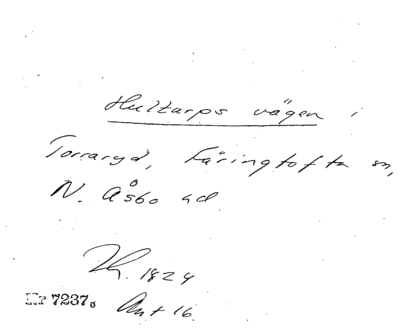 Hultarps vägen i
Torraryd, Färingtofta sn,
N. Åsbo hd
Kh. 1824
Nr 7237. Ant 16